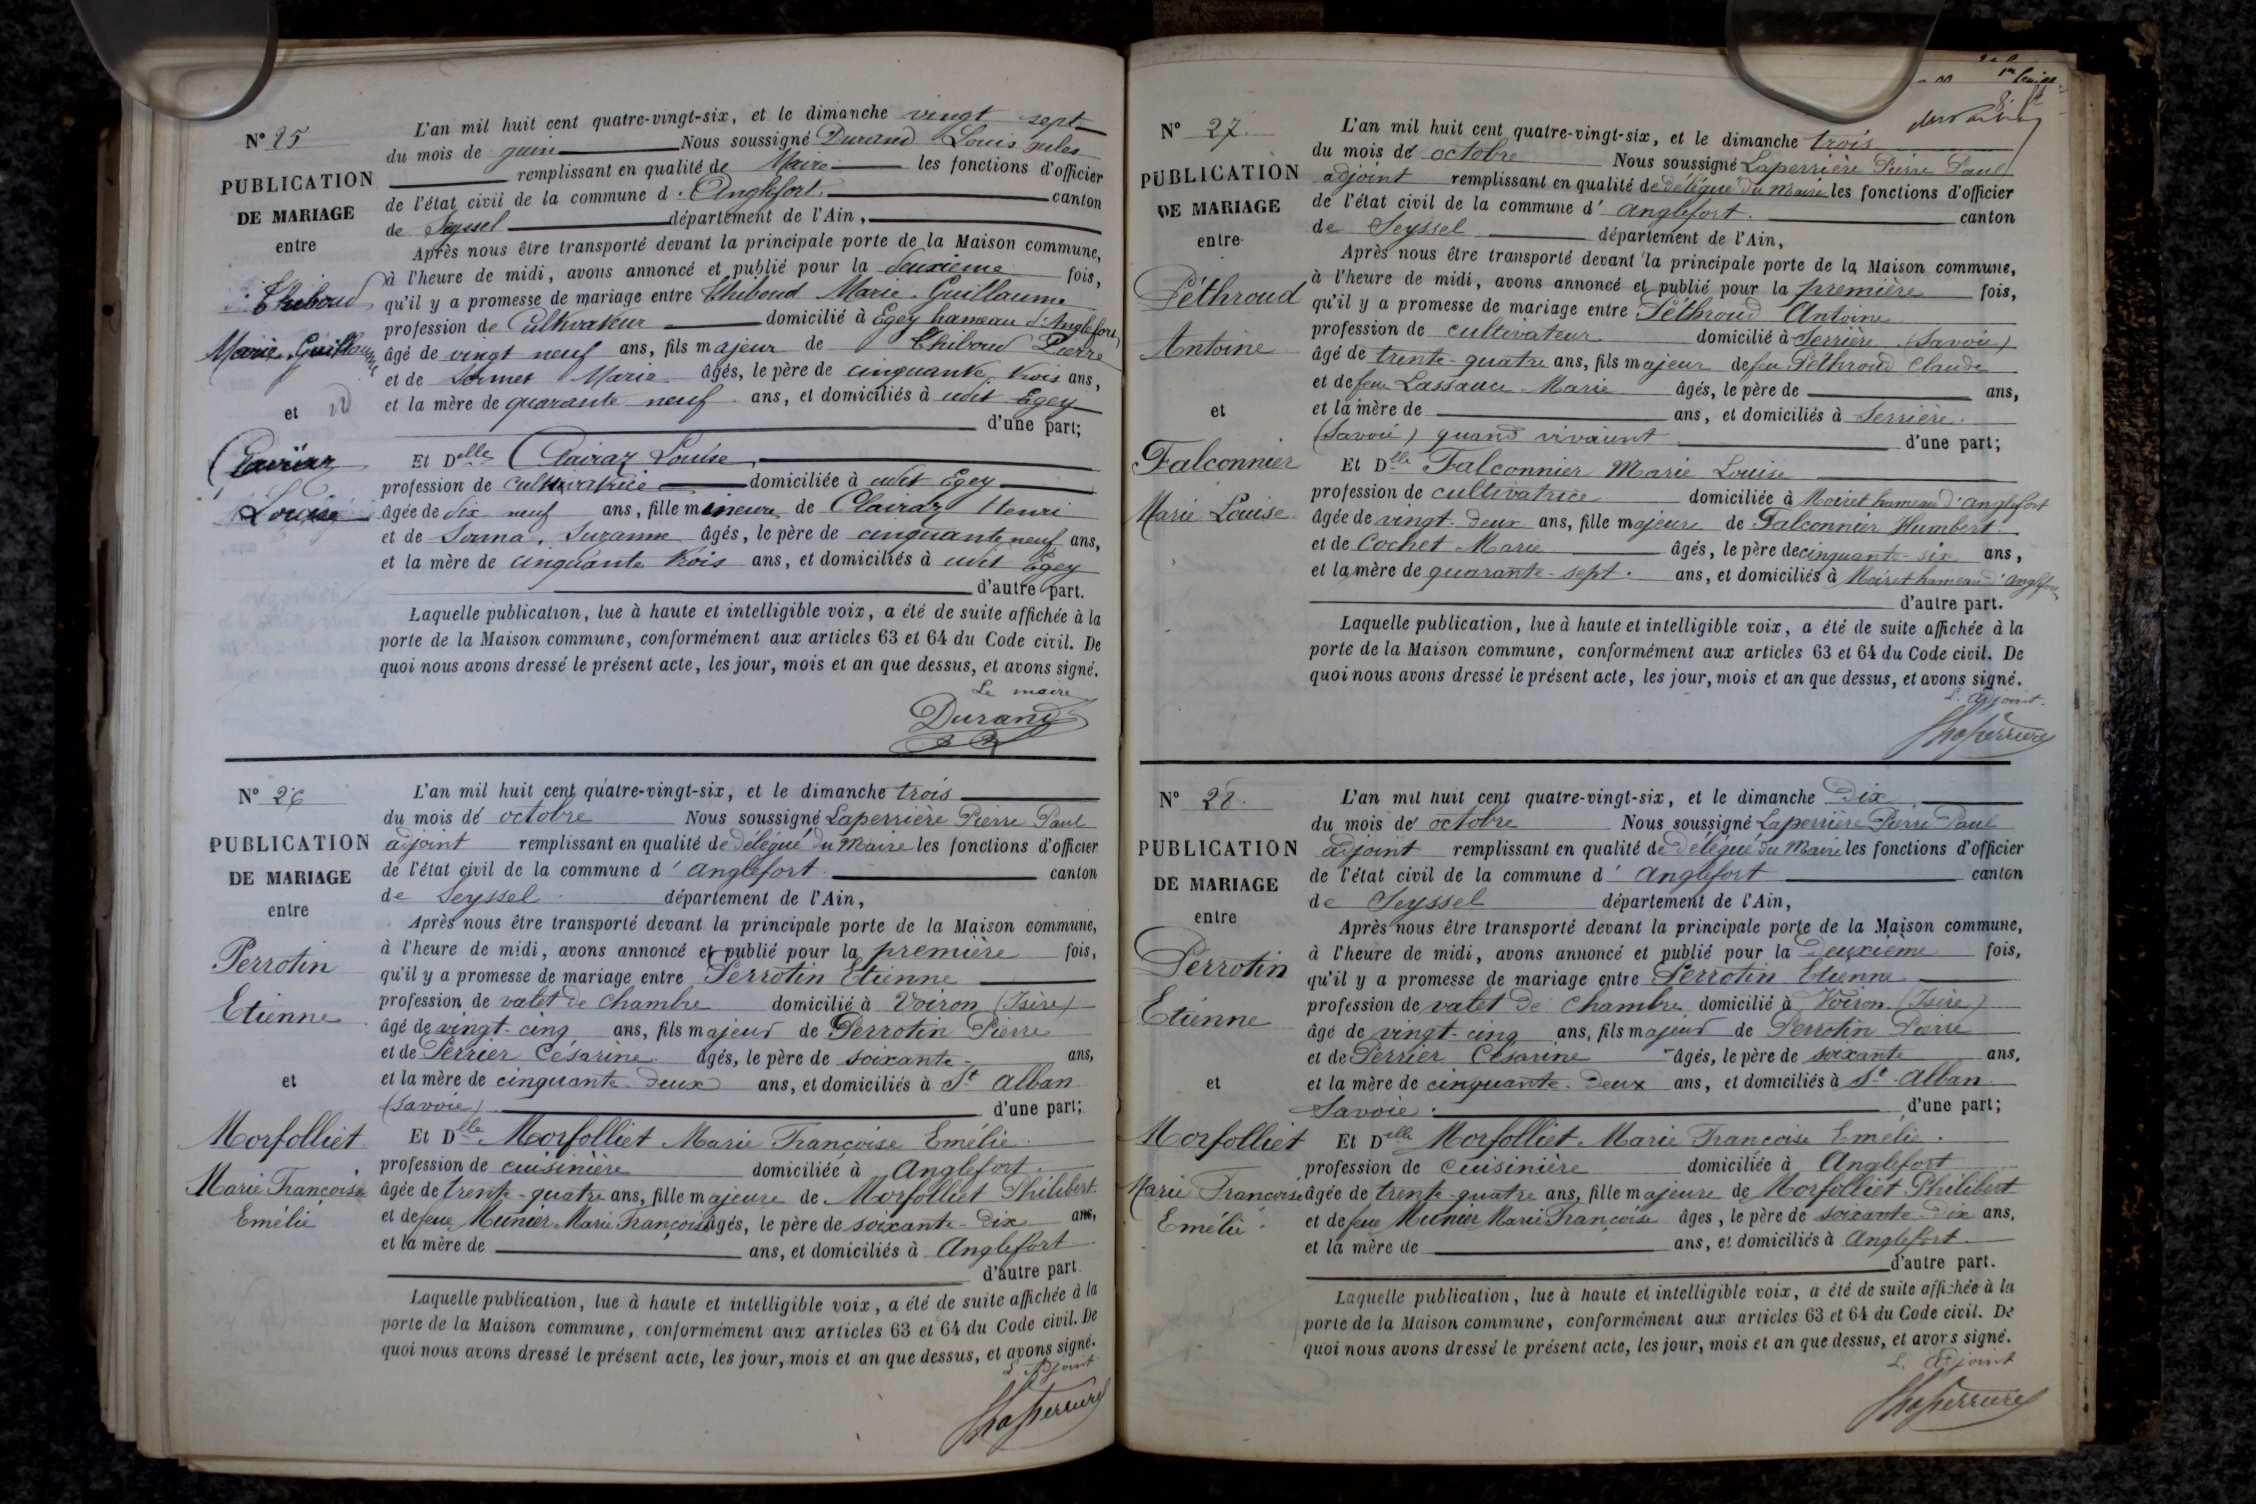 N° 25
PUBLICATION
DE MARIAGE
entre
Thiboud
Marie Guillaume
et
Clairaz
Louise
L'an mil huit cent quatre-vingt-six, et le dimanche vingt sept
du mois de juin Nous soussigné Durand Louis Jules
remplissant en qualité de Maire les fonctions d'officier
de l'état civil de la commune d'Anglefort canton
de Seyssel département de l'Ain,
Après nous être transporté devant la principale porte de la Maison commune,
à l'heure de midi, avons annoncé et publié pour la deuxième fois,
qu'il y a promesse de mariage entre Thiboud Marie Guillaume
profession de Cultivateur domicilié à Egey hameau d'Anglefort
âgé de vingt neuf ans, fils majeur de Thiboud Pierre
et de Marie âgés, le père de cinquante trois ans,
et la mère de quarante neuf ans, et domiciliés à udit Egey
d'une part;
Et Delle Clairaz Louise
profession de cultivatrice domiciliée à udit Egey
âgée de dix neuf ans, fille mineure de Clairaz Henri
et de Suzanne âgés, le père de cinquante neuf ans,
et la mère de cinquante trois ans, et domiciliés à udit Egey
d'autre part.
Laquelle publication, lue à haute et intelligible voix, a été de suite affichée à la
porte de la Maison commune, conformément aux articles 63 et 64 du Code civil. De
quoi nous avons dressé le présent acte, les jour, mois et an que dessus, et avons signé.
Le maire
Durand
N° 26
PUBLICATION
DE MARIAGE
entre
Perrotin
Etienne
et
Morfolliet
Marie Françoise
Emélie
L'an mil huit cent quatre-vingt-six, et le dimanche trois
du mois de octobre Nous soussigné Laperrière Pierre Paul
adjoint remplissant en qualité de délégué du Maire les fonctions d'officier
de l'état civil de la commune d'Anglefort canton
de Seyssel département de l'Ain,
Après nous être transporté devant la principale porte de la Maison commune,
à l'heure de midi, avons annoncé et publié pour la première fois,
qu'il y a promesse de mariage entre Perrotin Etienne
profession de valet de chambre domicilié à Voiron (Isère)
âgé de vingt-cinq ans, fils majeur de Perrotin Pierre
et de Perrier Césarine âgés, le père de soixante ans,
et la mère de cinquante-deux ans, et domiciliés à St Alban
(Savoie) d'une part;
Et Dlle Morfolliet Marie Françoise Emélie
profession de cuisinière domiciliée à Anglefort
âgée de trente-quatre ans, fille majeure de Morfolliet Philibert
et de feue Munier Marie Françoise âgés, le père de soixante-dix ans,
et la mère de ans, et domiciliés à Anglefort
d'autre part.
Laquelle publication, lue à haute et intelligible voix, a été de suite affichée à la
porte de la Maison commune, conformément aux articles 63 et 64 du Code civil. De
quoi nous avons dressé le présent acte, les jour, mois et an que dessus, et avons signé.
L'Adjoint
Laperrière
N° 27.
PUBLICATION
DE MARIAGE
entre
Péthroud
Antoine
et
Falconnier
Marie Louise
L'an mil huit cent quatre-vingt-six, et le dimanche trois
du mois de octobre Nous soussigné Laperrière Pierre Paul
adjoint remplissant en qualité de délégué du Maire les fonctions d'officier
de l'état civil de la commune d'Anglefort. canton
de Seyssel département de l'Ain,
Après nous être transporté devant la principale porte de la Maison commune,
à l'heure de midi, avons annoncé et publié pour la première fois,
qu'il y a promesse de mariage entre Péthroud Antoine
profession de cultivateur domicilié à Serrière (Savoie)
âgé de trente-quatre ans, fils majeur de feu Péthroud Claude
et de feue Lassauce Marie âgés, le père de ans,
et la mère de ans, et domiciliés à Serrière.
(Savoie) quand vivaient d'une part;
Et Dlle Falconnier Marie Louise
profession de cultivatrice domiciliée à Moiret hameau d'Anglefort
âgée de vingt-deux ans, fille majeure de Falconnier Humbert
et de Cochet Marie âgés, le père de cinquante-six ans,
et la mère de quarante-sept. ans, et domiciliés à Moiret hameau d'Anglefort
d'autre part.
Laquelle publication, lue à haute et intelligible voix, a été de suite affichée à la
porte de la Maison commune, conformément aux articles 63 et 64 du Code civil. De
quoi nous avons dressé le présent acte, les jour, mois et an que dessus, et avons signé.
L'adjoint.
Laperrière
N° 28.
PUBLICATION
DE MARIAGE
entre
Perrotin
Etienne
et
Morfolliet
Marie Françoise
Emélie
L'an mil huit cent quatre-vingt-six, et le dimanche Dix
du mois de octobre Nous soussigné Laperrière Pierre Paul
adjoint remplissant en qualité de délégué du Maire les fonctions d'officier
de l'état civil de la commune d'Anglefort canton
de Seyssel département de l'Ain,
Après nous être transporté devant la principale porte de la Maison commune,
à l'heure de midi, avons annoncé et publié pour la Deuxième fois,
qu'il y a promesse de mariage entre Perrotin Etienne
profession de valet de chambre domicilié à Voiron (Isère)
âgé de vingt-cinq ans, fils majeur de Perrotin Pierre
et de Perrier Césarine âgés, le père de soixante ans,
et la mère de cinquante-deux ans, et domiciliés à St Alban
Savoie. d'une part;
Et Delle Morfolliet Marie Françoise Emélie.
profession de cuisinière domiciliée à Anglefort
âgée de trente-quatre ans, fille majeure de Morfolliet Philibert
et de feue Munier Marie Françoise âgés, le père de soixante-dix ans,
et la mère de ans, et domiciliés à Anglefort.
d'autre part.
Laquelle publication, lue à haute et intelligible voix, a été de suite affichée à la
porte de la Maison commune, conformément aux articles 63 et 64 du Code civil. De
quoi nous avons dressé le présent acte, les jour, mois et an que dessus, et avons signé.
L'Adjoint
Laperrière